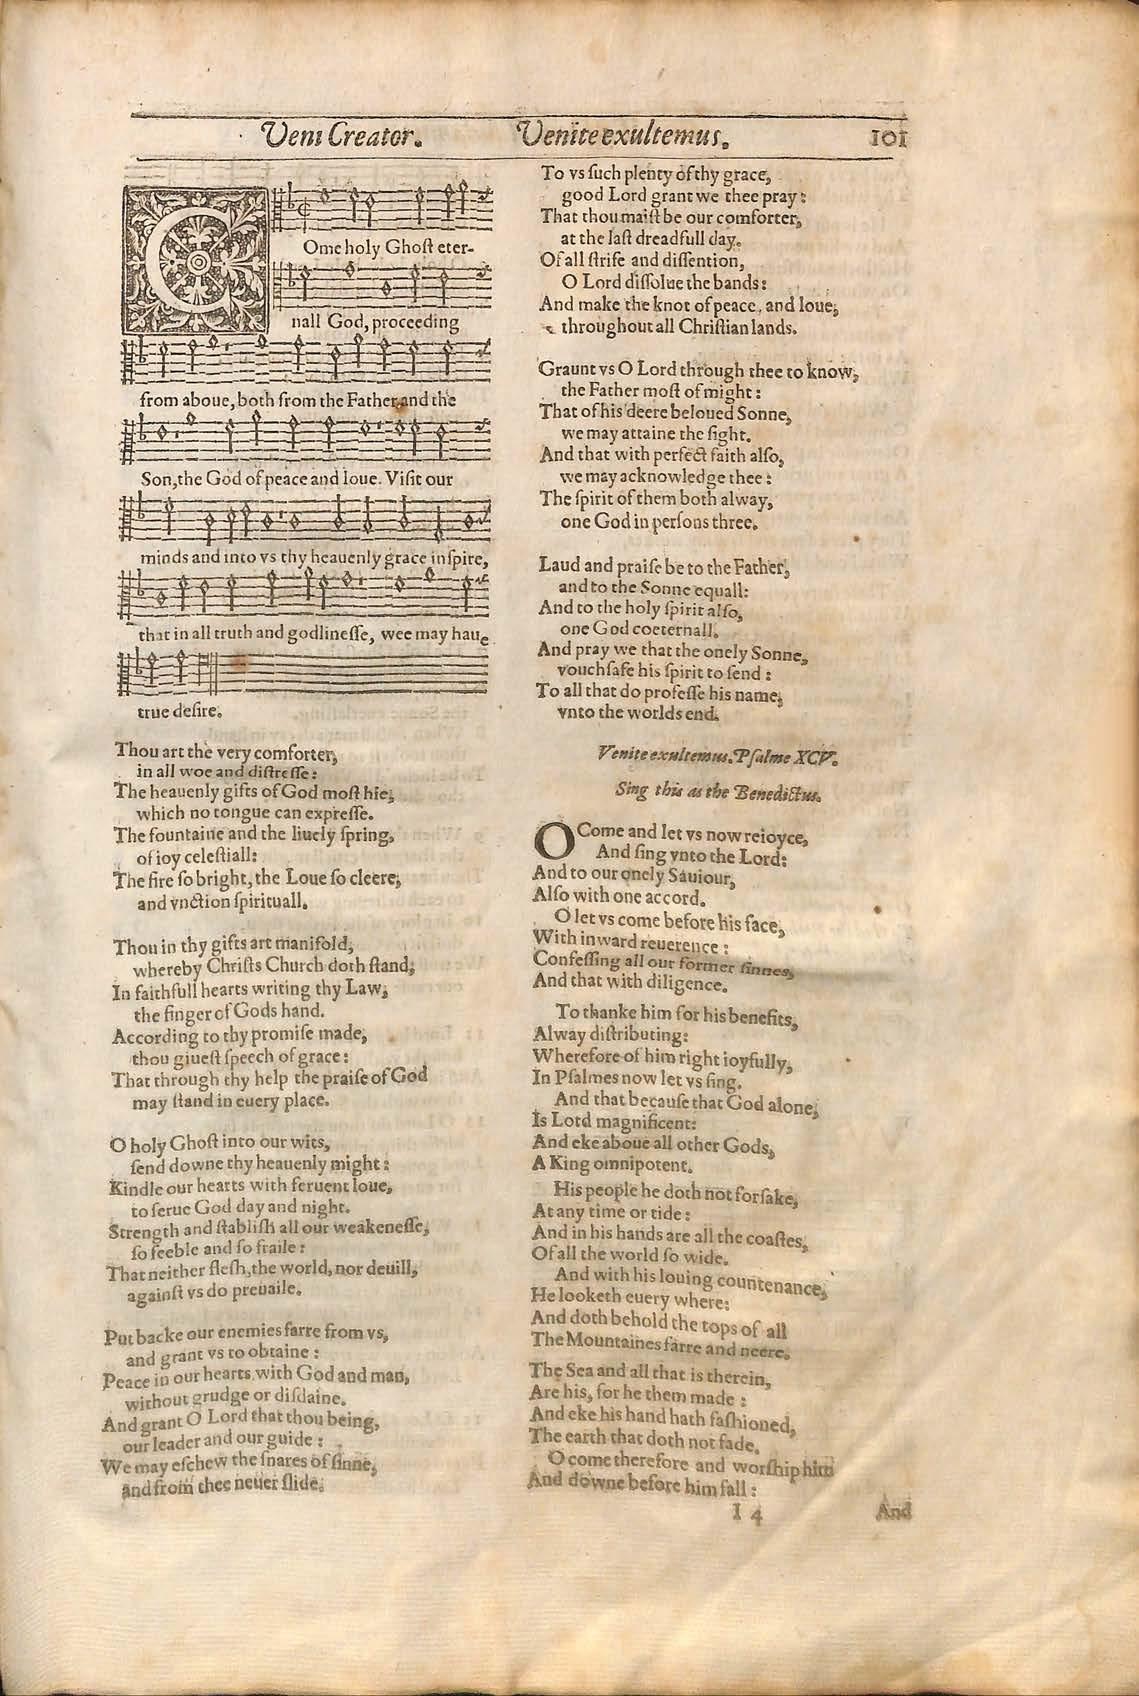 Veni Creator.
Venite exultemus.
101
COme holy Ghoſt eter-
nall God, proceeding
from aboue, both from the Father and the
Son, the God of peace and loue. Viſit our
minds and into vs thy heauenly grace inſpire,
that in all truth and godlineſſe, wee may haue
true deſire.
Thou art the very comforter,
in all woe and diſtreſſe:
The heauenly gifts of God moſt hie,
which no tongue can expreſſe.
The fountaine and the liuely ſpring,
of ioy celeſtiall:
The fire ſo bright, the Loue ſo cleere,
and vnction ſpirituall.
Thou in thy gifts art manifold,
whereby Chriſts Church doth ſtand,
In faithfull hearts writing thy Law,
the finger of Gods hand.
According to thy promiſe made,
thou giueſt ſpeech of grace:
That through thy help the praiſe of God
may ſtand in euery place.
O holy Ghoſt into our wits,
ſend downe thy heauenly might:
Kindle our hearts with feruent loue,
to ſerue God day and night.
Strength and ſtabliſh all our weakeneſſe,
ſo feeble and ſo fraile:
That neither fleſh, the world, nor deuill,
againſt vs do preuaile.
Put backe our enemies farre from vs,
and grant vs to obtaine:
Peace in our hearts with God and man,
without grudge or diſdaine.
And grant O Lord that thou being,
our leader and our guide:
We may eſchew the ſnares of ſinne,
and from thee neuer ſlide.
To vs ſuch plenty of thy grace,
good Lord grant we thee pray:
That thou maiſt be our comforter,
at the laſt dreadfull day.
Of all ſtrife and diſſention,
O Lord diſſolue the bands:
And make the knot of peace, and loue,
throughout all Chriſtian lands.
Graunt vs O Lord through thee to know,
the Father moſt of might:
That of his deere beloued Sonne,
we may attaine the ſight.
And that with perfect faith alſo,
we may acknowledge thee:
The ſpirit of them both alway,
one God in perſons three.
Laud and praiſe be to the Father,
and to the Sonne equall:
And to the holy ſpirit alſo,
one God coeternall.
And pray we that the onely Sonne,
vouchſafe his ſpirit to ſend:
To all that do profeſſe his name,
vnto the worlds end.
Venite exultemus. Pſalme XCV.
Sing this as the Benedictus.
O Come and let vs now reioyce,
And ſing vnto the Lord:
And to our onely Sauiour,
Alſo with one accord.
O let vs come before his face,
With inward reuerence:
Confeſſing all our former ſinnes,
And that with diligence.
To thanke him for his benefits,
Alway diſtributing:
Wherefore of him right ioyfully,
In Pſalmes now let vs ſing.
And that becauſe that God alone,
Is Lord magnificent:
And eke aboue all other Gods,
A King omnipotent.
His people he doth not forſake,
At any time or tide:
And in his hands are all the coaſtes,
Of all the world ſo wide.
And with his louing countenance,
He looketh euery where:
And doth behold the tops of all
The Mountaines farre and neere.
The Sea and all that is therein,
Are his, for he them made:
And eke his hand hath faſhioned,
The earth that doth not fade.
O come therefore and worſhip him
And downe before him fall:
I 4
And